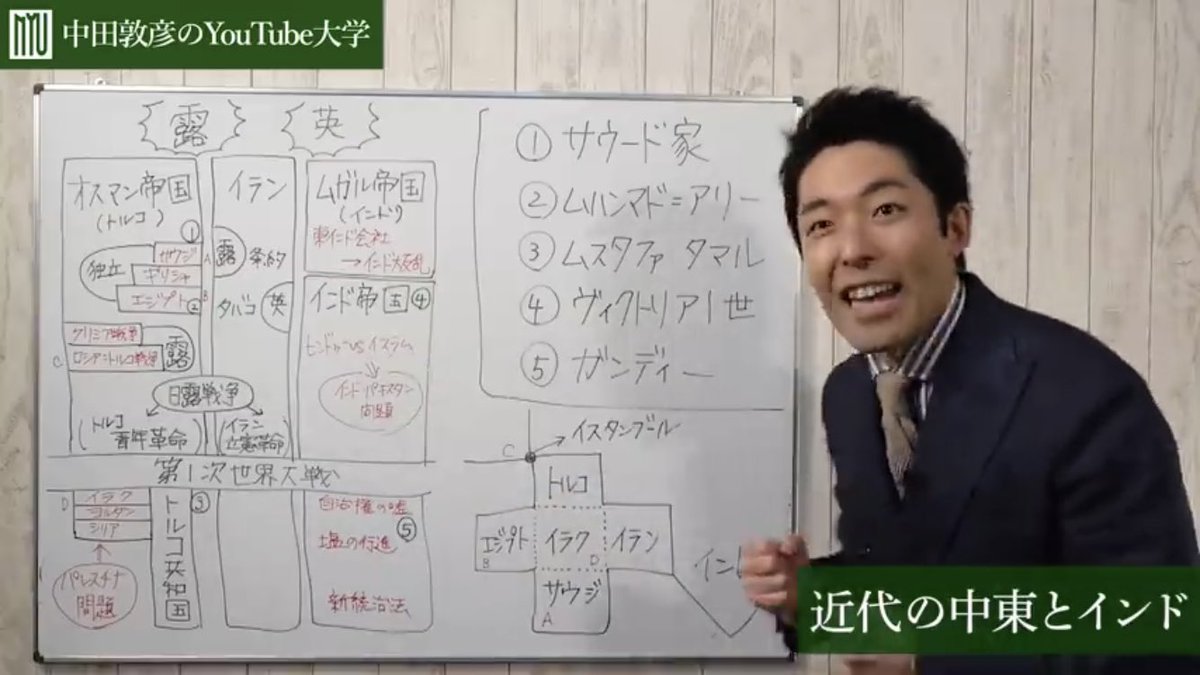 NYU
中田敦彦のYouTube大学
露
英
オスマン帝国
(トルコ)
①
独立
サウジ
ギリシャ
エジプト
②
A
B
クリミア戦争
ロシア=トルコ戦争
露
C
イラン
露
条約
タバコ
英
日露戦争
(トルコ
青年革命)
(イラン
立憲革命)
ムガル帝国
(インド)
東インド会社
→インド大反乱
インド帝国④
ヒンドゥーvsイスラム
インド・パキスタン
問題
第1次世界大戦
D
イラク
ヨルダン
シリア
パレスチナ
問題
トルコ共和国
③
自治権の嘘
⑤
塩の行進
新統治法
① サウード家
② ムハンマド=アリー
③ ムスタファ ケマル
④ ヴィクトリア1世
⑤ ガンディー
C
イスタンブール
トルコ
エジプト
B
イラク
D
イラン
サウジ
A
近代の中東とインド